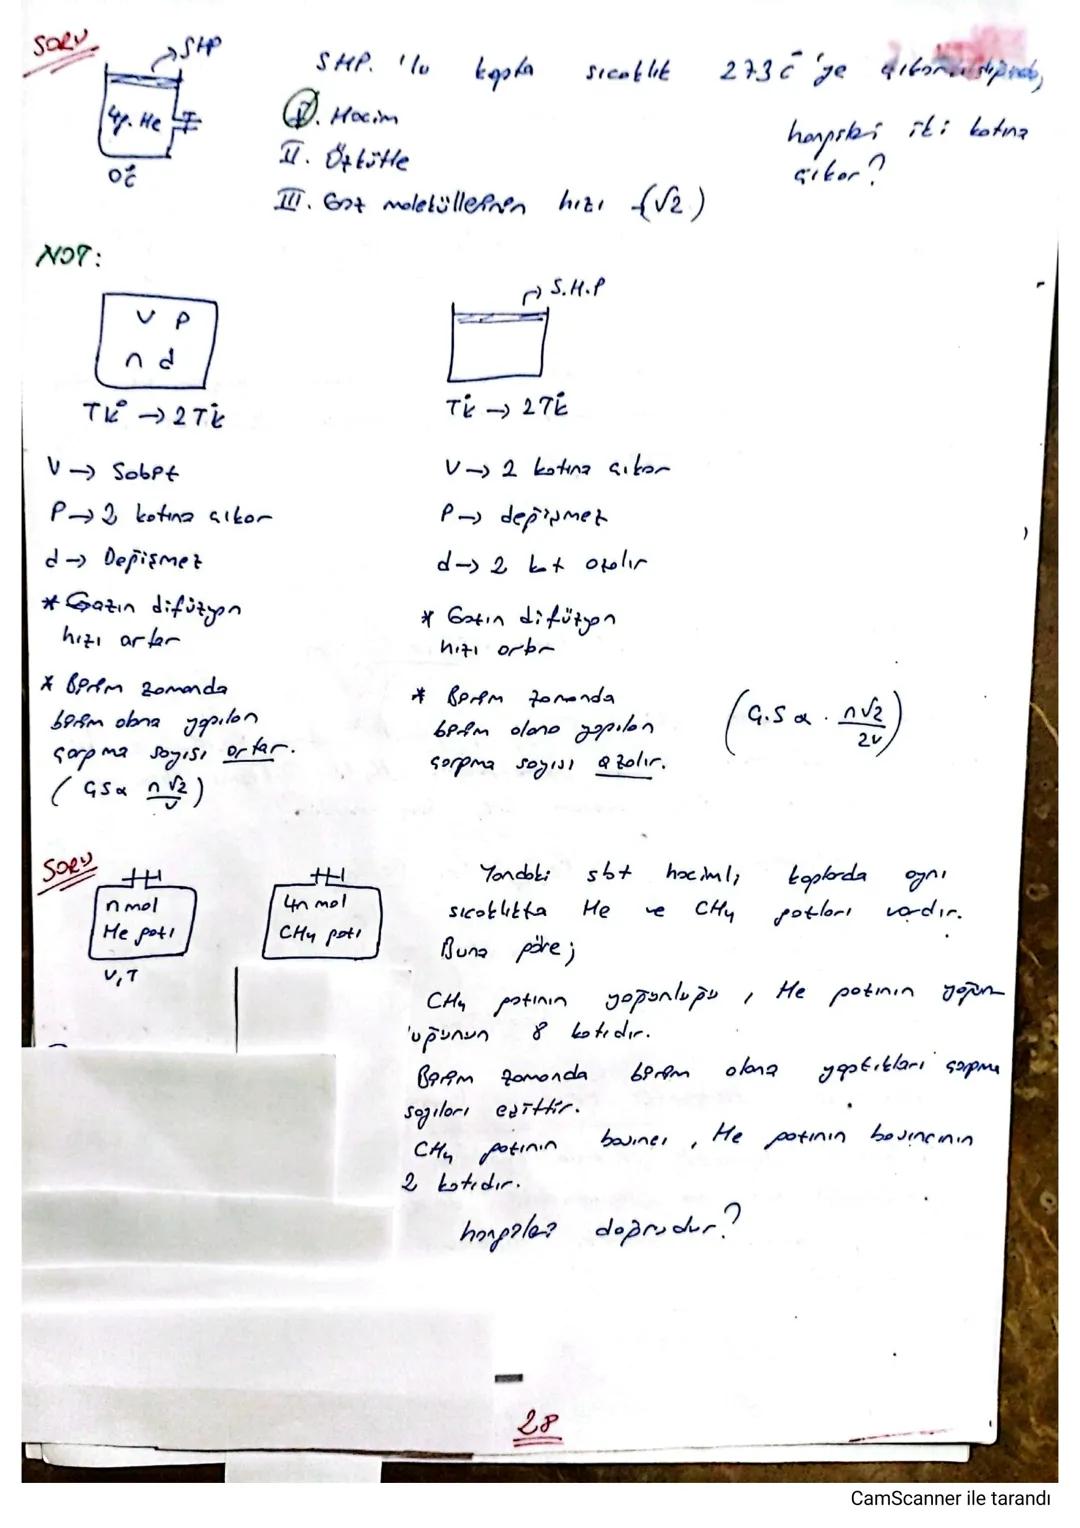 SORU
SHP
4g. He
0°C
SHP. 'lu kapta sıcaklık 273°C 'ye
hangisi iki katına
çıkar?
I. Hacim
II. Özkütle
III. Gaz moleküllerinin hızı (√2)
NOT:
V P
n d
T°K → 2T°K
V → Sabit
P → 2 katına çıkar
d → Değişmez
* Gazın difüzyon
hızı artar
* Birim zamanda
birim alana yapılan
çarpma sayısı artar.
(ÇS α n√2/V)
S.H.P
T°K → 2T°K
V → 2 katına çıkar
P → değişmez
d → 2 kat azalır
* Gazın difüzyon
hızı artar
* Birim zamanda
birim alana yapılan
çarpma sayısı azalır.
(Ç.S α . n√2/2V)
SORU
n mol
He gazı
V,T
4n mol
CH4 gazı
Yandaki sbt hacimli kaplarda aynı
sıcaklıkta He ve CH4 gazları vardır.
Buna göre;
CH4 gazının yoğunluğu, He gazının yoğun
'uğunun 8 katıdır.
Birim zamanda birim alana yaptıkları çarpma
sayıları eşittir.
CH4 gazının basıncı, He gazının basıncının
2 katıdır.
hangileri doğrudur?
28
CamScanner ile tarandı